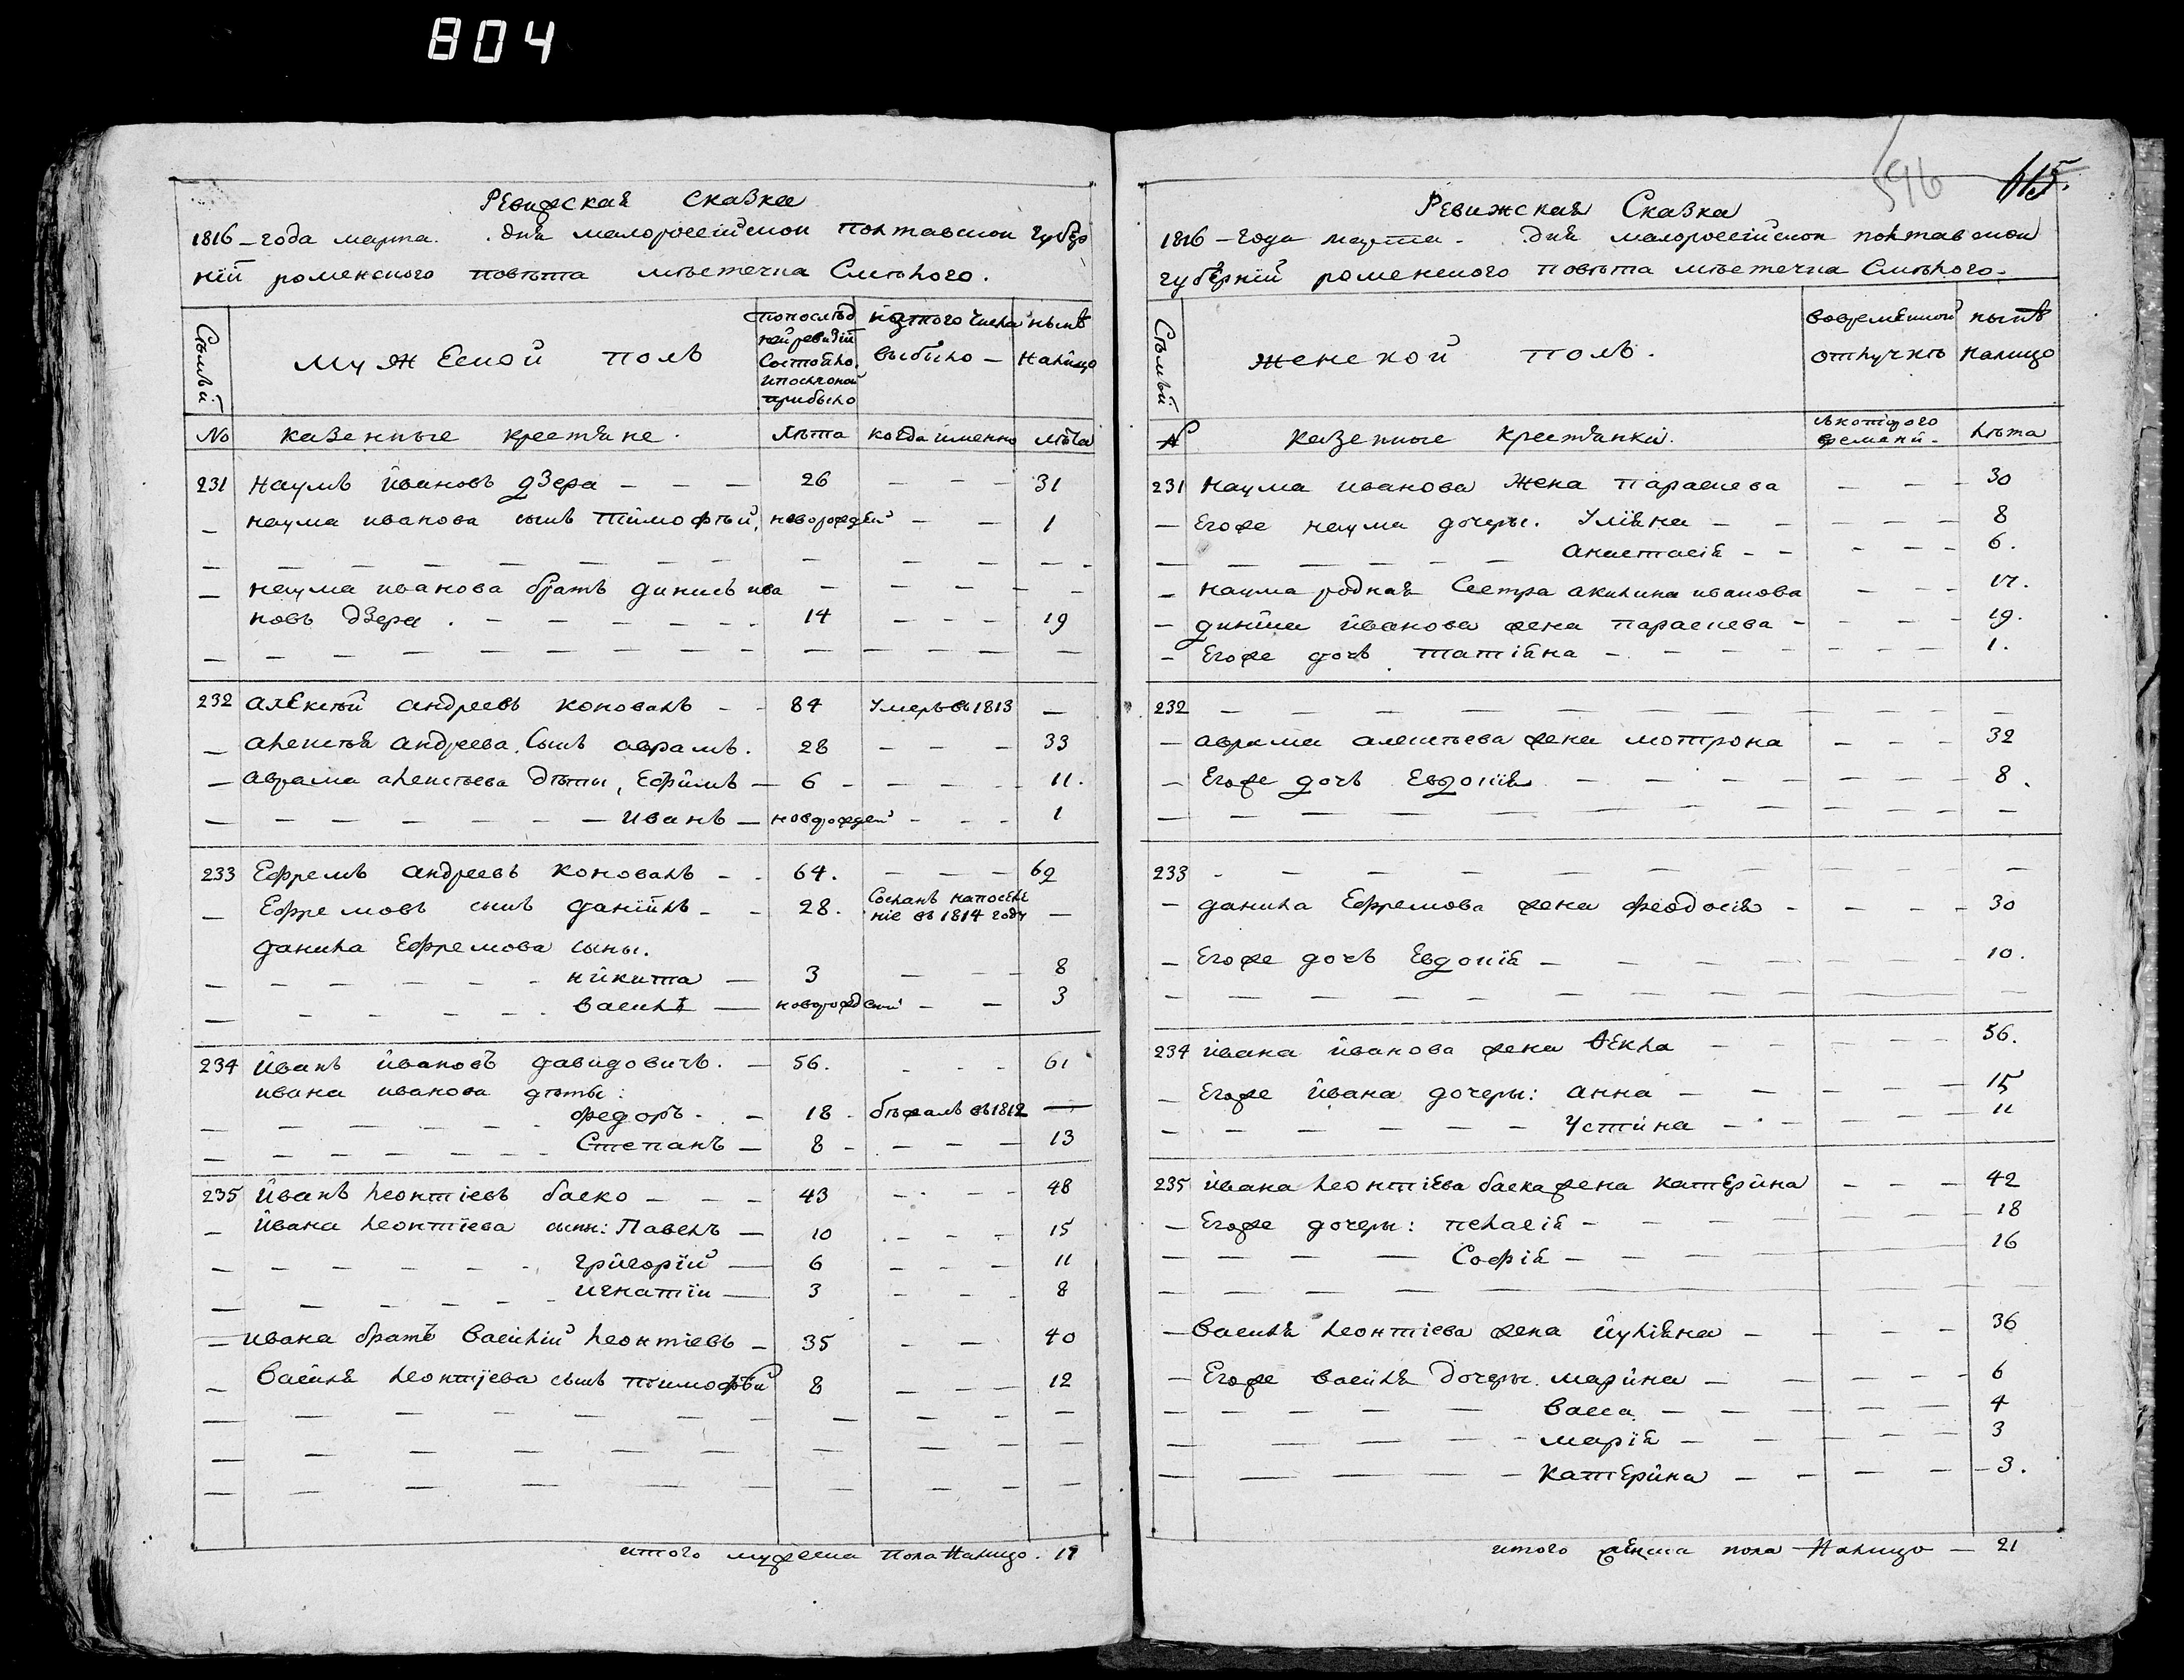 804
Ревижская сказка
1816 – года марта . дня малоросеійской полтавской губер
ніи роменского повѣта мѣстечка Смѣлого.
Семьи
мужеской полъ
попослѣд
ней ревизіи
состояло
ипослѣ оной
прибыло
изтого числа
выбыло –
нынѣ
налицо
№ казенные крестяне. лѣта когда именно лѣта
231 Наумъ ивановъ дзера – – – 26 – – – 31
– наума иванова сынъ тимофѣй, новорожден – – 1
– наума иванова братъ динисъ ива –
новъ дзера . – – – 14 – – – 19
232 алексѣй андреевъ коновалъ – – 84 умеръ въ 1813 –
– алексѣя андреева сынъ аврамъ. 28 – – – 33
– аврама алексѣева дѣти, Ефимъ – 6 – – – 11.
– – – – – иванъ – новорожден – – – 1
233 Ефремъ андреевъ коновалъ – – 64. – – – 69
– Ефремовъ сынъ данійлъ – – 28. Сосланъ напоселе
ніе въ 1814 году –
данила Ефремова сыны.
– – – – – никита – 3 – – – 8
– – – – – василь – новорожденный – – 3
234 иванъ ивановъ давидовичъ. – 56. – – – 61
ивана иванова дѣты:
– – – – – федоръ. – 18 – бѣжалъ въ 1812 –
– – – – – Степанъ – 8 – – – 13
235 иванъ леонтіевъ баско – – – 43 – – – 48
– ивана леонтіева сыны: Павелъ – 10 – – – 15
– – – – – григорій – 6 – – – 11
– – – – – игнатіи – 3 – – – 8
– ивана братъ василій леонтіевъ – 35 – – 40
– василя леонтіева сынъ тимофѣй 8 – – – 12
итого мужеска пола налицо. 19
596
615.
Ревижская Сказка
1816 – года марта – дня малоросеійской полтавской
губерніи роменского повѣта мѣстечка Смѣлого.
Семьи
женской полъ.
вовременной
отлучкѣ
нынѣ
налицо
№ казенные крестянки. съ которого
времени – лѣта
231 наума иванова жена параскева – – – 30
– Егоже наума дочеры. Уліяна – – – 8
– – – – – анастасія – – – 6.
– наума родная сестра акилина иванова – – – 17.
– диниса иванова жена параскева – – – 19.
– Егоже дочь татіяна – – – 1.
232 – – – – –
– аврама алексѣева жена мотрона – – – 32
– Егоже дочь Евдокія – – – 8.
233 – – – – –
– данила Ефремова жена феодосія – – – 30
– Егоже дочь Евдокія – – – 10.
234 ивана иванова жена Ѳекла – – – 56.
– Егоже ивана дочеры: анна – – – 15
– – – – – Устина – – – 11
235 ивана леонтіева баска жена катерина – – – 42
– Егоже дочеры: пелагія – – – 18
– – – – Софія – – – 16
– василя леонтіева жена иуліяна – – – 36
– Егоже василя дочеры. марина – – – 6
– – – – – васса. – – – 4
– – – – – марія – – – 3
– – – – – катерина – – – 3.
итого женска пола налицо – 21